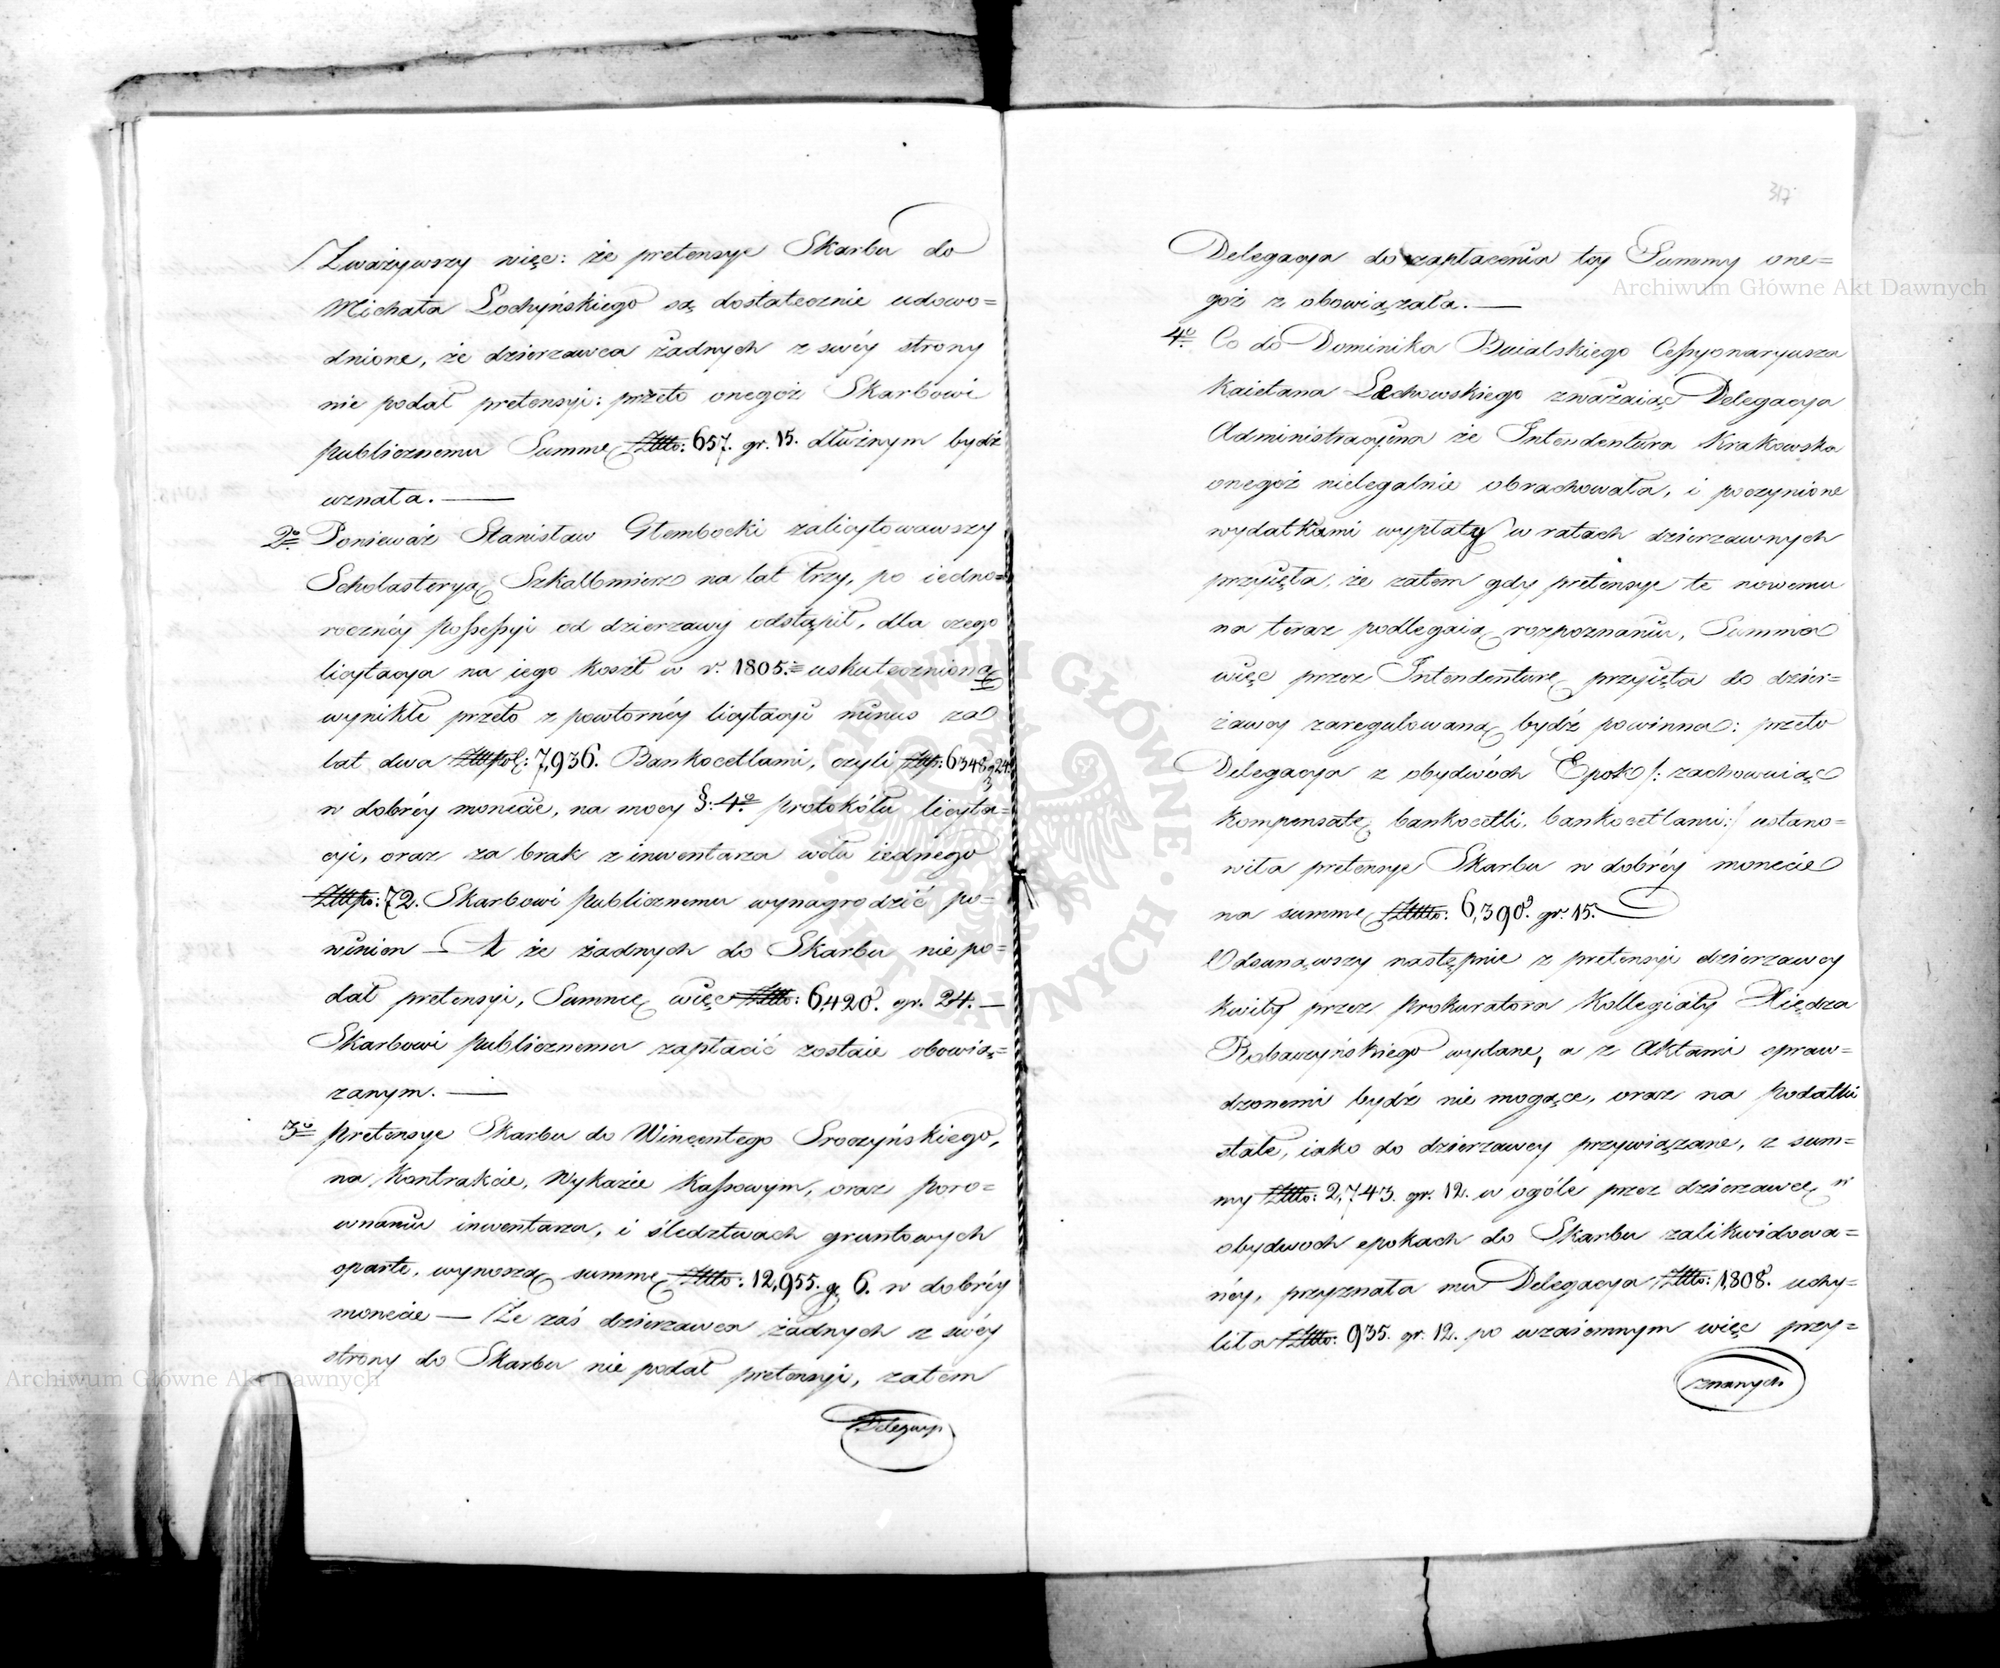 Zważywszy więc: że pretensye Skarbu do
Michała Lochyńskiego są dostatecznie udowo=
dnione, że dzierzawca żadnych z swéy strony
nie podał pretensyi: przeto onegoż Skarbowi
publicznemu Summę Złtto: 657. gr. 15. dłużnym bydź
uznała. —
2o. Ponieważ Stanisław Głembocki zalicytowawszy
Scholasteryą Szkalbmierz na lat trzy, po iedno=
rocznéy possessyi od dzierzawy odstąpił, dla czego
licytacya na iego koszt w r. 1805. uskuteczniona
wynikłe przeto z powtornéy licytacyi minus za
lat dwa Złtpol: 7,936. Bankocetlami, czyli Złp: 6348. g. 24.
w dobréy monecie, na mocy §: 4o. protokółu licyta=
cyi, oraz za brak z inwentarza wołu iednego
Złtpo: 72. Skarbowi publicznemu wynagrodzić po=
winien — A że żadnych do Skarbu nie po=
dał pretensyi, Summę więc Złtto: 6,420. gr. 24. —
Skarbowi publicznemu zapłacić zostaie obowią=
zanym. —
3o. Pretensye Skarbu do Wincentego Sroczyńskiego,
na Kontrakcie, Wykazie Kassowym, oraz poro=
wnaniu inwentarza, i śledztwach gruntowych
oparte, wynoszą summę Złtto: 12,955. g. 6. w dobréy
monecie — Że zaś dzierzawca żadnych z swéy
strony do Skarbu nie podał pretensyi, zatem
Delegacy
317
Delegacya do zapłacenia téy Summy one=
goż z obowiązała. —
4o. Co do Dominika Bialskiego Cessyonaryusza
Kaietana Lechowskiego zważaiąc Delegacya
Administracyina że Intendentura Krakowska
onegoż nielegalnie obrachowała, i poczynione
wydatkami wypłaty w ratach dzierzawnych
przyięła, że zatem gdy pretensye te nowemu
na teraz podlegaią rozpoznaniu, Summa
więc przez Intendenturę przyięta do dzier=
żawcy zaregulowaną bydź powinna: przeto
Delegacya z obydwóch Epok /: zachowaiąc
kompensatę bankocetli, bankocetlami :/ ustano=
wiła pretensye Skarbu w dobréy monecie
na summę Złtto: 6,390. gr. 15.
Odsunąwszy następnie z pretensyi dzierzawcy
kwity przez Prokuratora Kollegiaty Xiędza
Robaczyńskiego wydane, a z Aktami spraw=
dzonemi bydź nie mogące, oraz na Podatki
stałe, iako do dzierzawcy przywiązane, z sum=
my Złtto: 2,743. gr. 12. w ogóle przez dzierzawcę w
obydwoch epokach do Skarbu zalikwidowa=
néy, przyznała mu Delegacya Złtto: 1,808. uchy=
liła Złtto: 935. gr. 12. po wzaiemnym więc przy=
znanych
Archiwum Główne Akt Dawnych
Archiwum Główne Akt Dawnych
ARCHIWUM GŁÓWNE AKT DAWNYCH